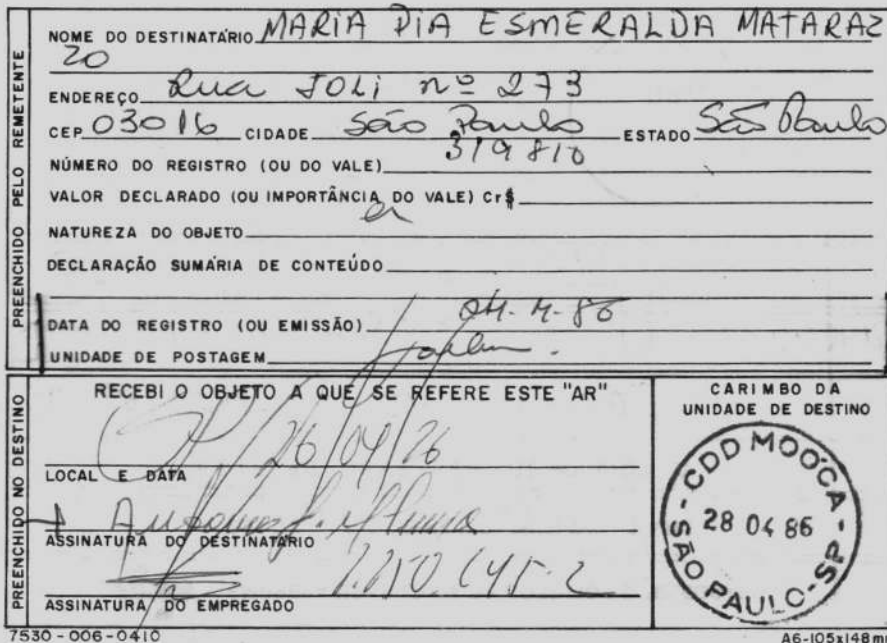 PREENCHIDO PELO REMETENTE
NOME DO DESTINATÁRIO MARIA PIA ESMERALDA MATARAZ
ZO
ENDEREÇO Rua JOLi nº 273
CEP 03016 CIDADE São Paulo ESTADO São Paulo
NÚMERO DO REGISTRO (OU DO VALE) 319810
VALOR DECLARADO (OU IMPORTÂNCIA DO VALE) Cr$
NATUREZA DO OBJETO
DECLARAÇÃO SUMÁRIA DE CONTEÚDO
DATA DO REGISTRO (OU EMISSÃO) 24-4-86
UNIDADE DE POSTAGEM
PREENCHIDO NO DESTINO
RECEBI O OBJETO A QUE SE REFERE ESTE "AR"
SP 26/04/86
LOCAL E DATA
ASSINATURA DO DESTINATÁRIO
ASSINATURA DO EMPREGADO
CARIMBO DA
UNIDADE DE DESTINO
CDD MOÓCA
28 04 86
SÃO PAULO-SP
7530-006-0410
A6-105x148mm